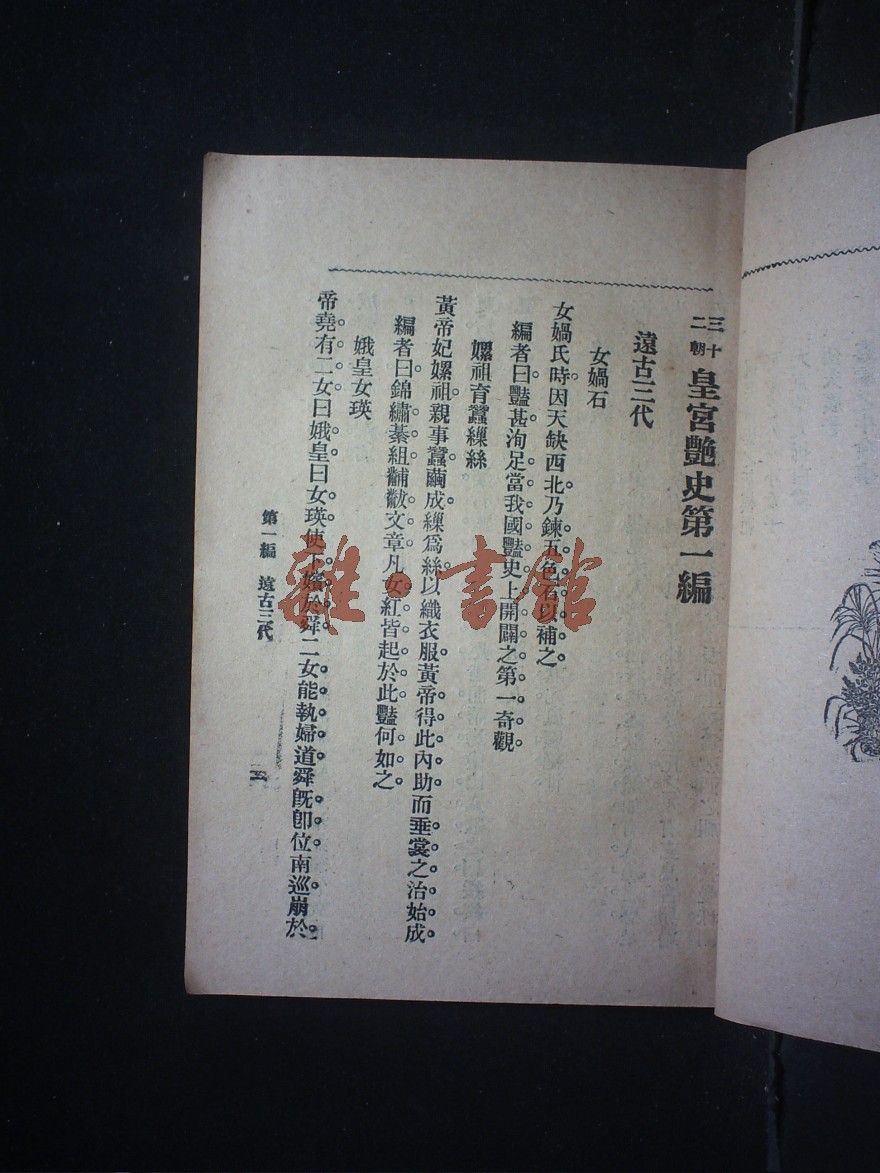 三十二朝皇宮艷史第一編
遠古三代
女媧石
女媧氏時因天缺西北乃鍊五色石以補之
編者曰豔甚洵足當我國豔史上開闢之第一奇觀
嫘祖育蠶繅絲
黃帝妃嫘祖親事蠶繭成繅爲絲以織衣服黃帝得此內助而垂裳之治始成
編者曰錦繡綦組黼黻文章凡女紅皆起於此豔何如之
娥皇女瑛
帝堯有二女曰娥皇曰女瑛使下嬪於舜二女能執婦道舜旣卽位南巡崩於
第一編 遠古三代
雜·書館